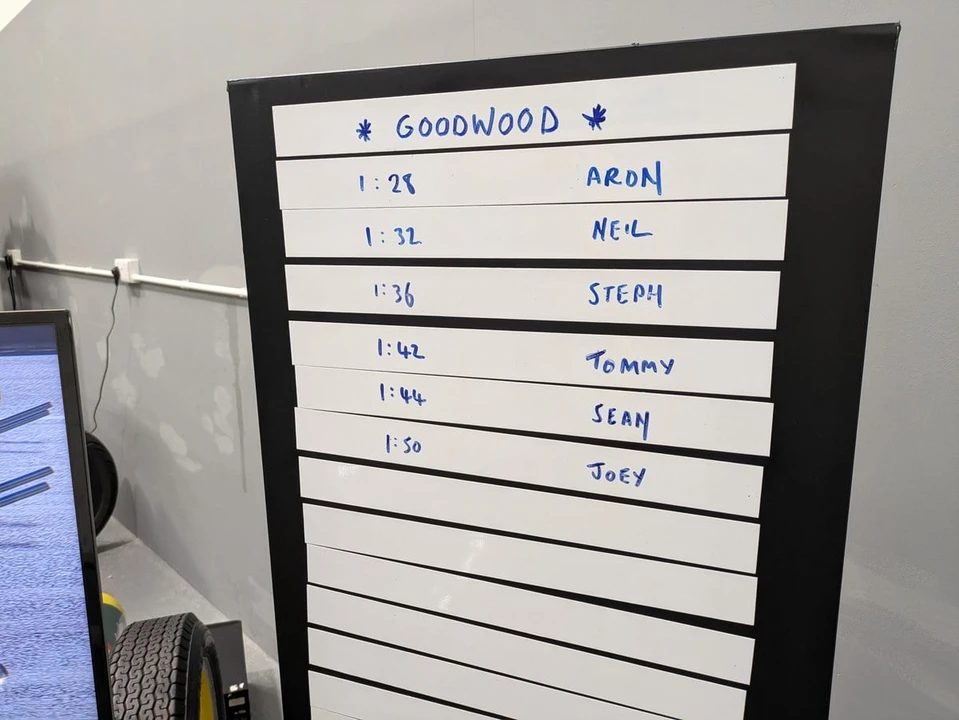 * GOODWOOD *
1:28 ARON
1:32 NEIL
1:36 STEPH
1:42 TOMMY
1:44 SEAN
1:50 JOEY